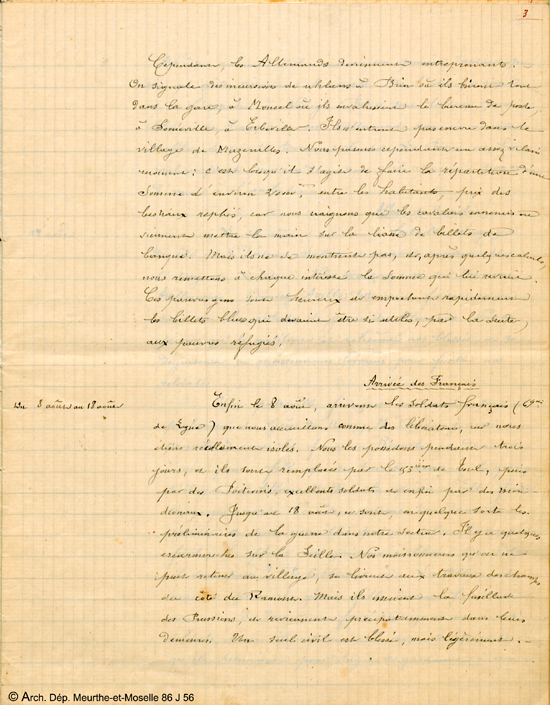 3
Cependant, les Allemands deviennent entreprenants.
On signale des incursions de uhlans à Brin où ils brisent tout
dans la gare, à Moncel où ils envahissent le bureau de poste,
à Sornéville, à Erbéville. Ils n'entrent pas encore dans le
village de Mazerulles. Nous passons cependant un assez vilain
moment : c'est lorsqu'il s'agit de faire la répartition d'une
somme d'environ entre les habitants, prix des
bestiaux car nous craignons que les cavaliers ennemis ne
viennent mettre la main sur la liasse de billets de
banque. Mais ils ne se montrent pas, et, après quelques calculs,
nous remettons à chaque intéressé la somme qui lui revient.
Ces pauvres gens sont heureux d'emporter rapidement
les billets bleus qui devaient être si utiles, par la suite,
aux pauvres réfugiés.
Arrivée des Français
Du 8 août au 18 août
Enfin le 8 août, arrivent les soldats français (
de Ligne) que nous accueillons comme des libérateurs, car nous
étions réellement isolés. Nous les possédons pendant trois
jours, et ils sont remplacés par le de Toul, puis
par des Poitevins, excellents soldats et enfin par des
Jusqu'au 18 août, ce sont en quelque sorte les
préliminaires de la guerre dans notre secteur. Il y a quelques
escarmouches sur la Seille. Nos moissonneurs qu'on ne
peut retenir au village, se livrent aux travaux des champs
du côté du Ramont. Mais ils essuient la fusillade
des Prussiens, et reviennent précipitamment dans leurs
demeures. Un seul civil est blessé, mais légèrement.
© Arch. Dép. Meurthe-et-Moselle 86 J 56